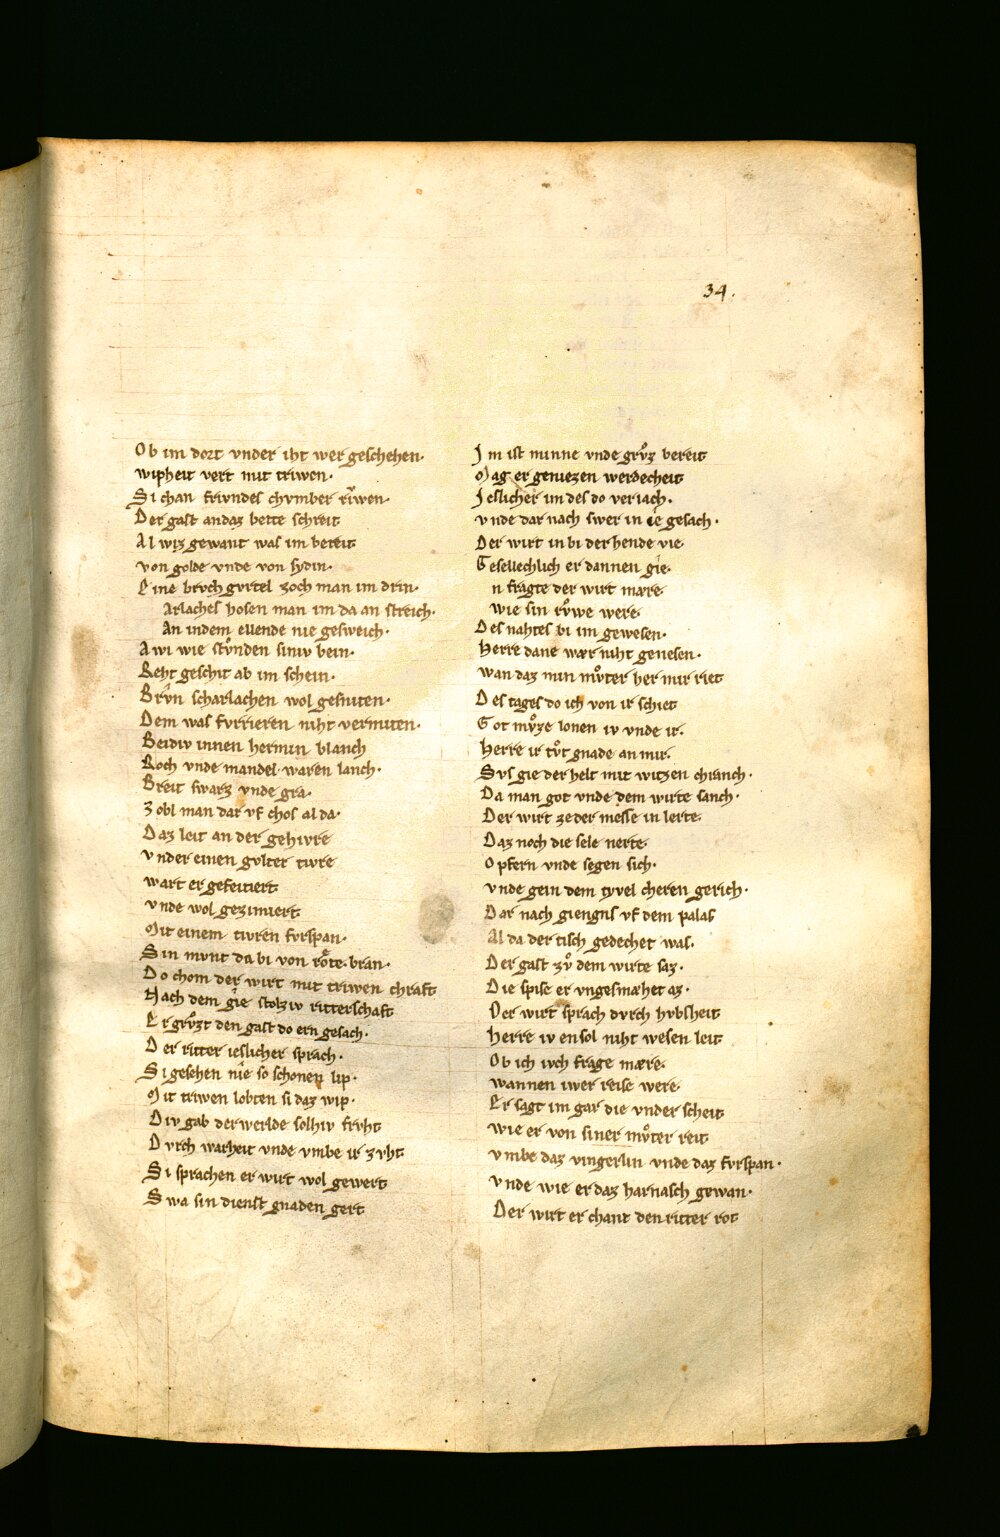 34.
Ob im dort vnder iht wer geschehen·
wipheit vert mit triwen·
Si chan frivndes chvmber rîwen·
Der gast an daz bette schreit
Al wiz gewant was im bereit
von golde vnde von sydin·
Eine brvch gvrtel zoch man im drin·
Arlaches hosen man im da an streich·
An indem ellende nie gesweich·
Awi wie stvͦnden siniv bein·
Reht geschit ab im schein·
Brvn scharlachen wol gesniten·
Dem was fvrrieren niht vermiten·
Beidiv innen hermin blanch
Roch vnde mandel waren lanch·
Breit swarz vnde gra·
zobl man dar vf chos al da·
Daz leit an der gehivre
vnder einen gvlter tivre
wart er gefeitiert
vnde wol gezimiert
Mit einem tivren fvrspan·
Sin mvnt da bi von roͤte bran·
Do chom der wirt mit triwen chraft
Nach dem gie stolziv ritterschaft
Er grvͦzt den gast do ern gesach·
Der ritter ieslicher sprach·
Si gesehen nîe so schonen lip·
Mit triwen lobten si daz wip·
Div gab der werlde solhiv frvht
Dvrch warheit vnde vmbe ir zvht
Si sprachen er wirt wol gewert
Swa sin dienst gnaden gert
Im ist minne vnde grvͦz bereit
Mag er geniezen werdecheit
Ieslicher im des do veriach·
vnde dar nach swer in ie gesach·
Der wirt in bi der hende vie·
Gesellechlich er dannen gie·
n fragte der wirt mære·
wie sin rvͦwe were·
Des nahtes bi im gewesen·
Herre dane wær niht genesen·
wan daz min mvͦter her mir riet
Des tages do ich von ir schiet
Got mvͦze lonen iv vnde ir·
Herre ir tvͦt gnade an mir·
Svs gie der helt mit witzen chranch·
Da man got vnde dem wirte sanch·
Der wirt ze der messe in lerte·
Daz noch die sele nerte·
Opfern vnde segen sich·
vnde gein dem tyvel cheren gerich·
Dar nach giengns vf dem palas
Al da der tisch gedechet was·
Der gast zvͦ dem wirte saz·
Die spise er vngesmæhet az·
Der wirt sprach dvrch hvbsheit
Herre iv ensol niht wesen leit
Ob ich ivch frage mære·
wannen iwer reise were·
Er sagt im gar die vnder scheit
wie er von siner mvͦter reit
vmbe daz vingerlin vnde daz fvrspan·
vnde wie er daz harnasch gewan·
Der wirt er chant den ritter rot